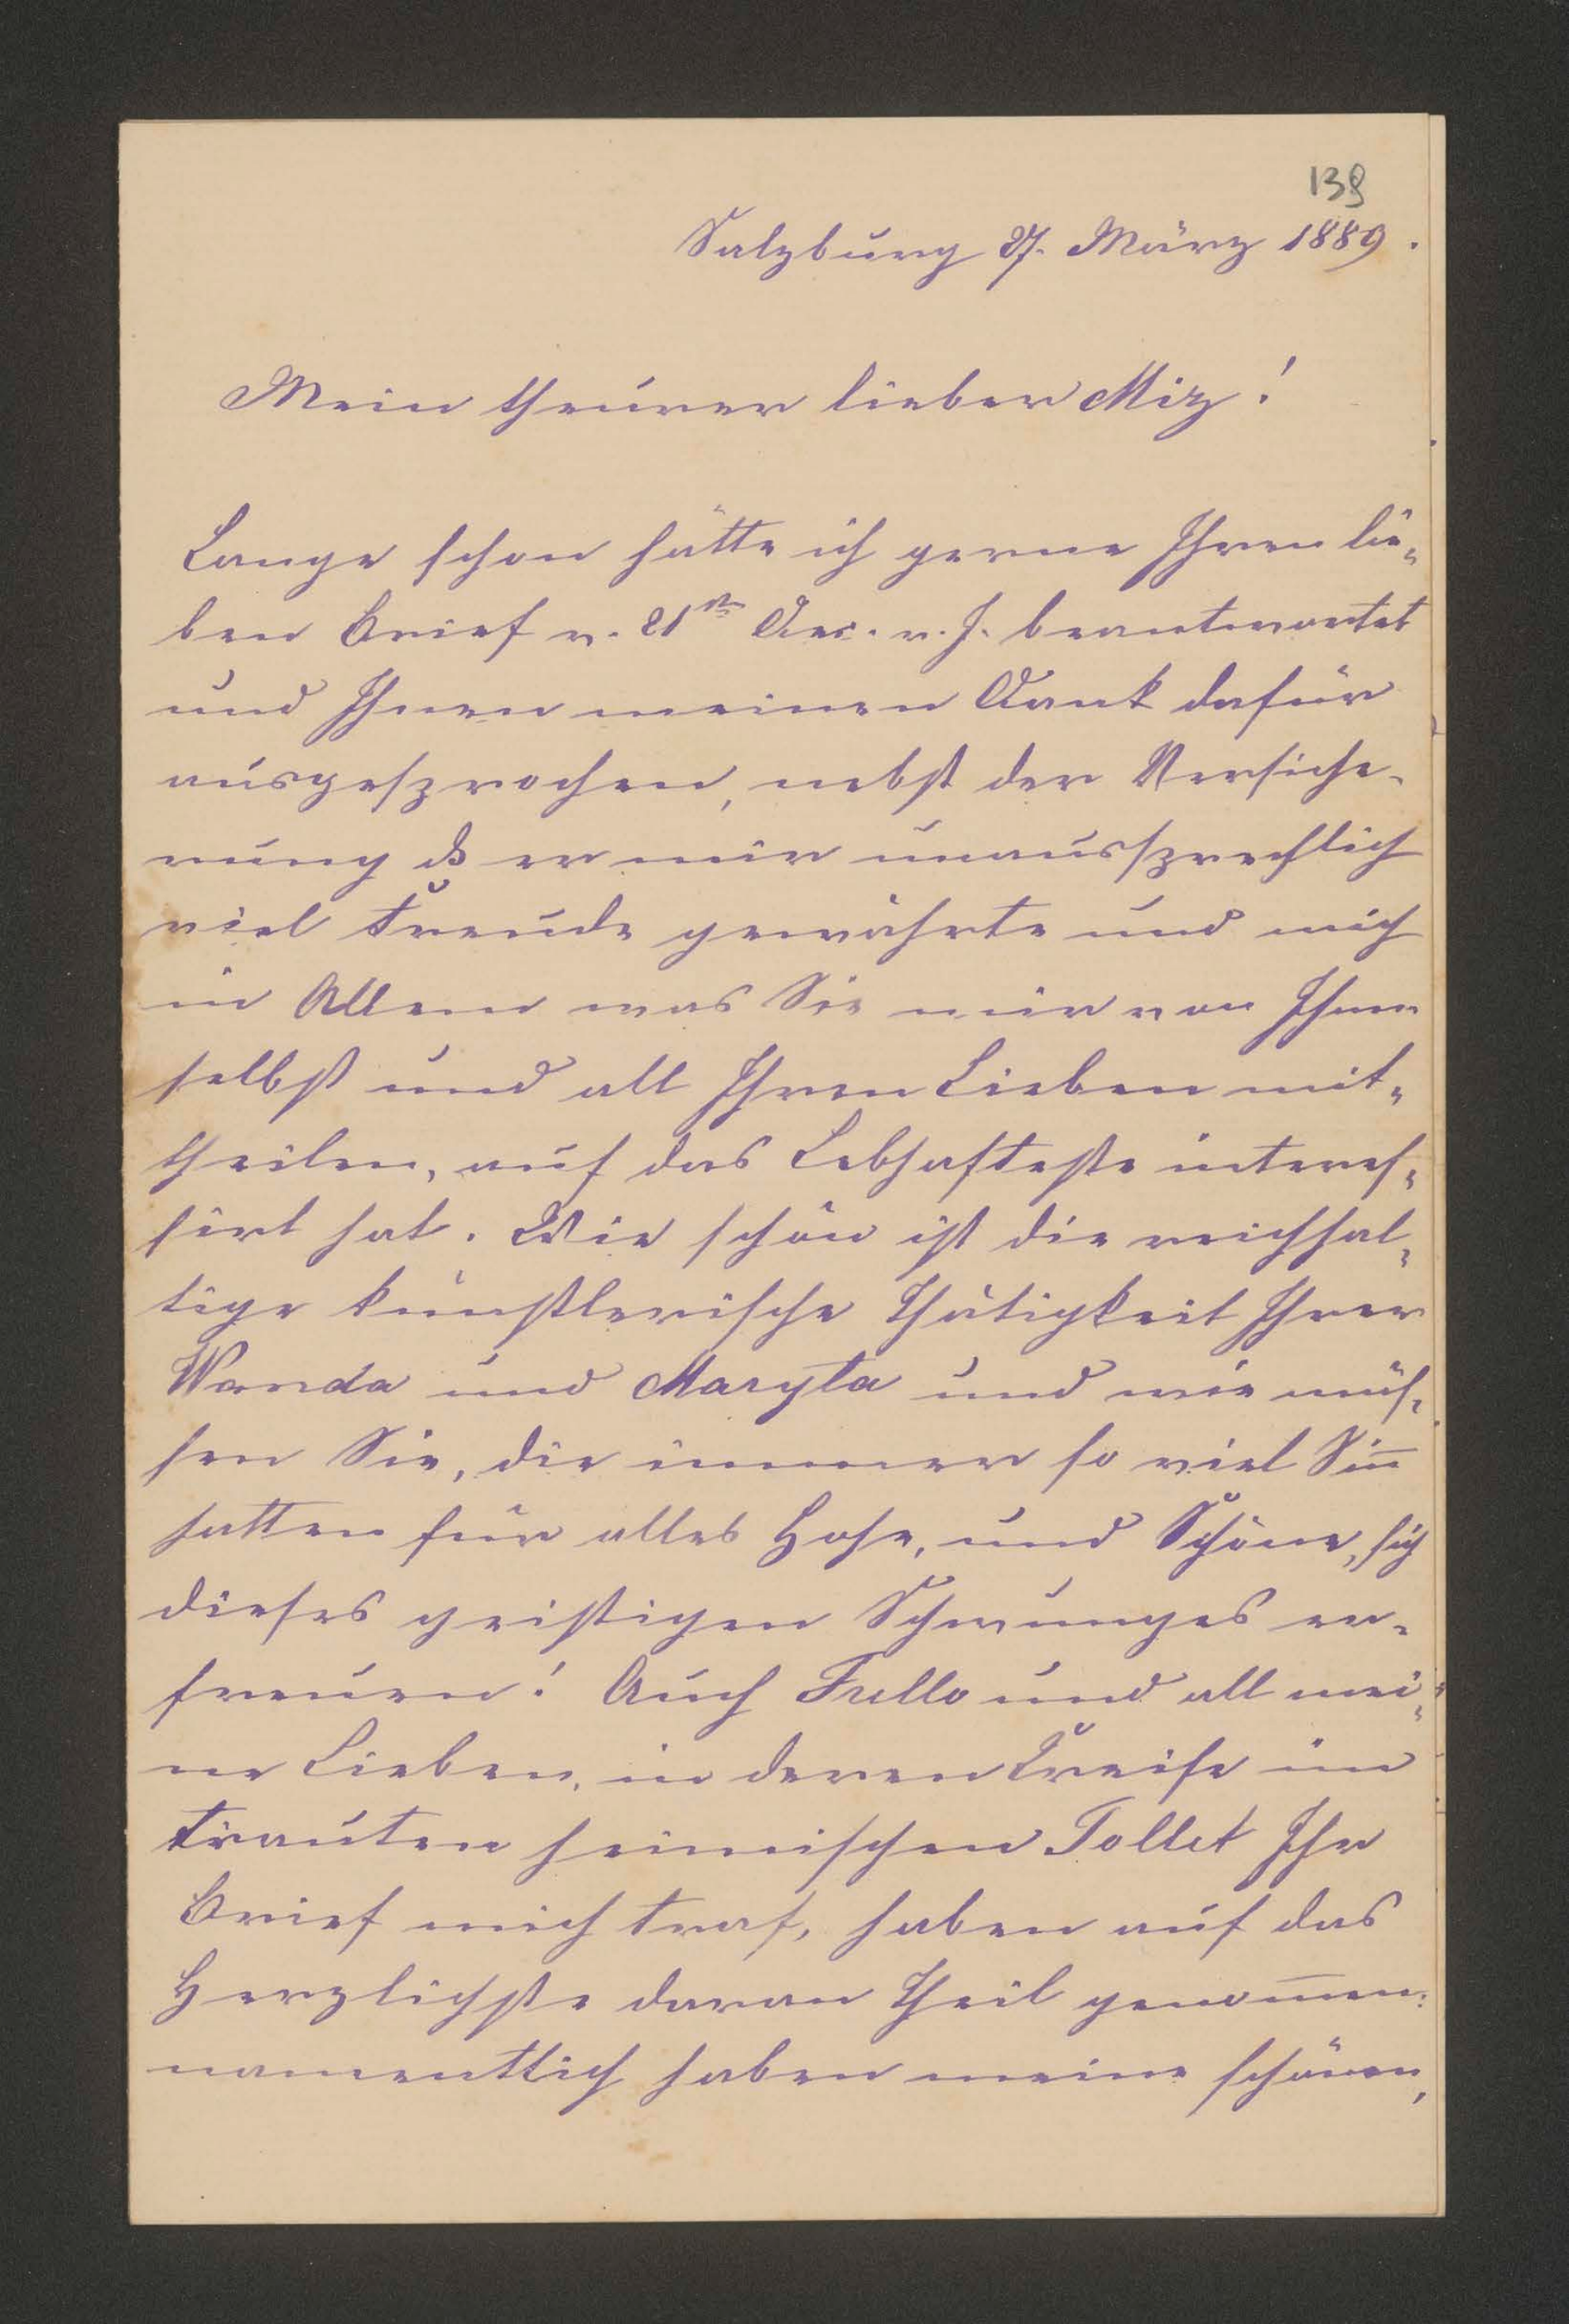 139
Salzburg 27. März 1889.
Mein theurer lieber Miz!
Lange schon hätte ich gerne Ihren lie-
ben Brief v. 21ten Dec. v. J. beantwortet
und Ihnen meinen Dank dafür
ausgesprochen, nebst der Versiche-
rung ds er mir unaussprechlich
viel Freude gewährte und mich
in Allem was Sie mir von Ihnen
selbst und all Ihren Lieben mit-
theilen, auf das Lebhafteste interes-
sirt hat. Wie schön ist die reichhal-
tige künstlerische Thätigkeit Ihrer
Wanda und Maryta und wie müs-
sen Sie, die immer so viel Siñ
hatten für alles Hohe, und Schöne, sich
dieses geistigen Schwunges er-
freuen! Auch Fullo und all mei-
ne Lieben, in deren Kreise im
trauten heimischen Tollet Ihr
Brief mich traf, haben auf das
Herzlichste daran Theil genom̄en:
namentlich haben meine schönen,